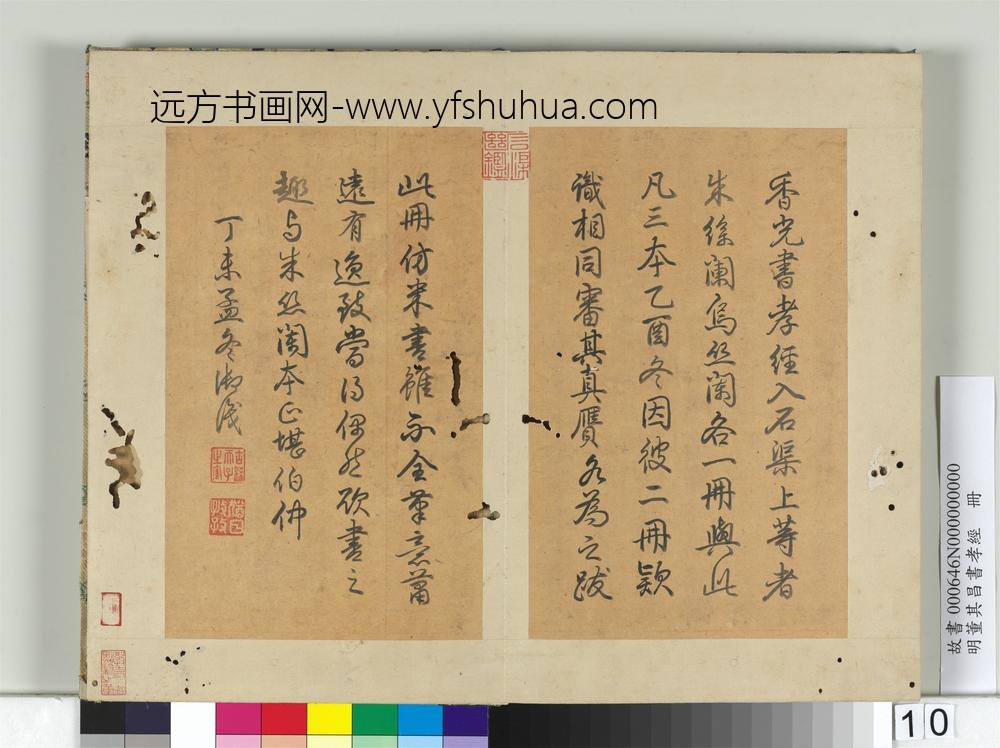 远方书画网-www.yfshuhua.com
香光書孝經入石渠上等者
朱絲闌烏丝闌各一冊與此
凡三本乙酉冬因彼二冊款
識相同審其真贋各為之跋
此冊仿米書雖不全筆意蕭
遠有逸致當得偶然欲書之
趣与朱丝闌本正堪伯仲
丁未孟冬御識
猶日孜孜
故書 000646N000000000
明董其昌書孝經 冊
10